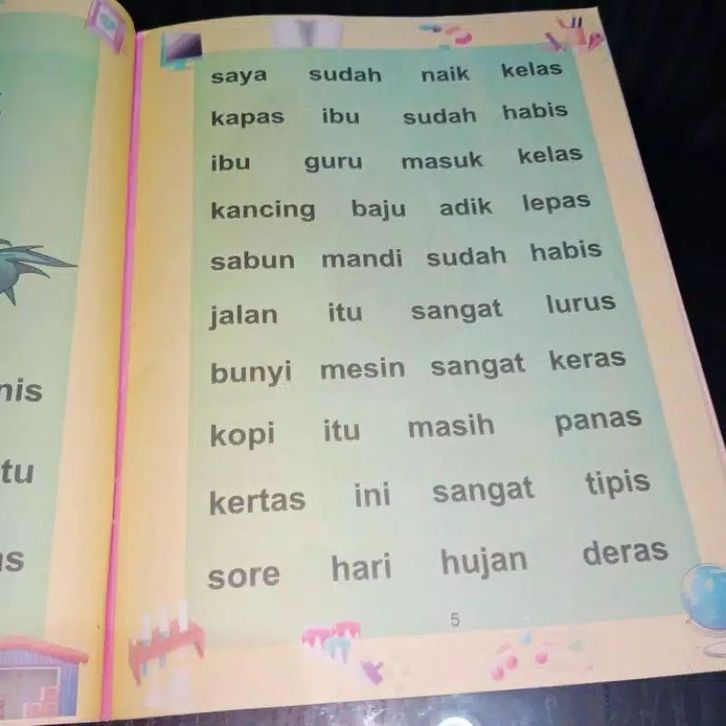 saya sudah naik kelas
kapas ibu sudah habis
ibu guru masuk kelas
kancing baju adik lepas
sabun mandi sudah habis
jalan itu sangat lurus
bunyi mesin sangat keras
kopi itu masih panas
kertas ini sangat tipis
sore hari hujan deras
5